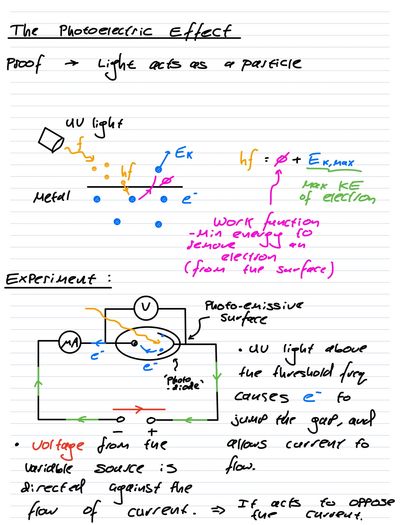 The Photoelectric Effect
Proof → Light acts as a particle
UV light
f
hf
EK
φ
Metal
e-
hf = φ + EK,max
max KE
of electron
Work function
- Min energy to
remove an
electron
(from the surface)
Experiment :
V
Photo-emissive
surface
MA
e-
e-
'Photo
diode'
- +
• UV light above
the threshold freq
causes e- to
jump the gap, and
allows current to
flow.
• Voltage from the
variable source is
directed against the
flow of current. ⇒ It acts to oppose
the current.